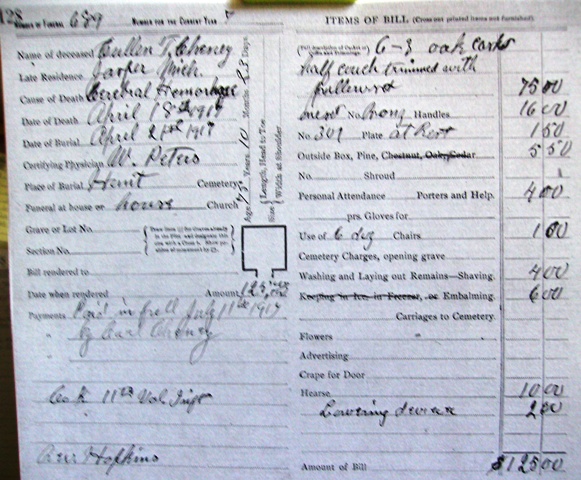 128
NUMBER OF FUNERAL 689 NUMBER FOR THE CURRENT YEAR
Name of deceased Cullen T. Cheney
Late Residence Jasper Mich.
Cause of Death Cerebral Hemorhage
Date of Death April 18th 1917
Date of Burial April 21st 1917
Certifying Physician W. Peters
Place of Burial Hunt Cemetery
Funeral at house or house Church
Grave or Lot No.
Section No.
Bill rendered to
Date when rendered Amount 125.00
Payments Paid in full July 11th 1917
" by Carl Cheney
"
Co K 11th Vol Inft
Hopkins
Age 75 Years 10 Months 23 Days.
Size Length, Head to Toe
Width at Shoulder
ITEMS OF BILL (Cross out printed items not furnished)
6-3 oak casket
half couch trimmed with
75 00
No. Handles 16 00
No. 301 Plate at Rest 1 50
Outside Box, Pine, Chestnut, Oak, Cedar 5 50
No. Shroud
Personal Attendance Porters and Help. 4 00
prs. Gloves for
Use of 6 doz Chairs 1 00
Cemetery Charges, opening grave
Washing and Laying out Remains—Shaving. 4 00
Keeping in Ice in Freezer, or Embalming. 6 00
Carriages to Cemetery.
Flowers "
Advertising
Crape for Door
Hearse 10 00
Lowering device 2 00
Amount of Bill $125 00